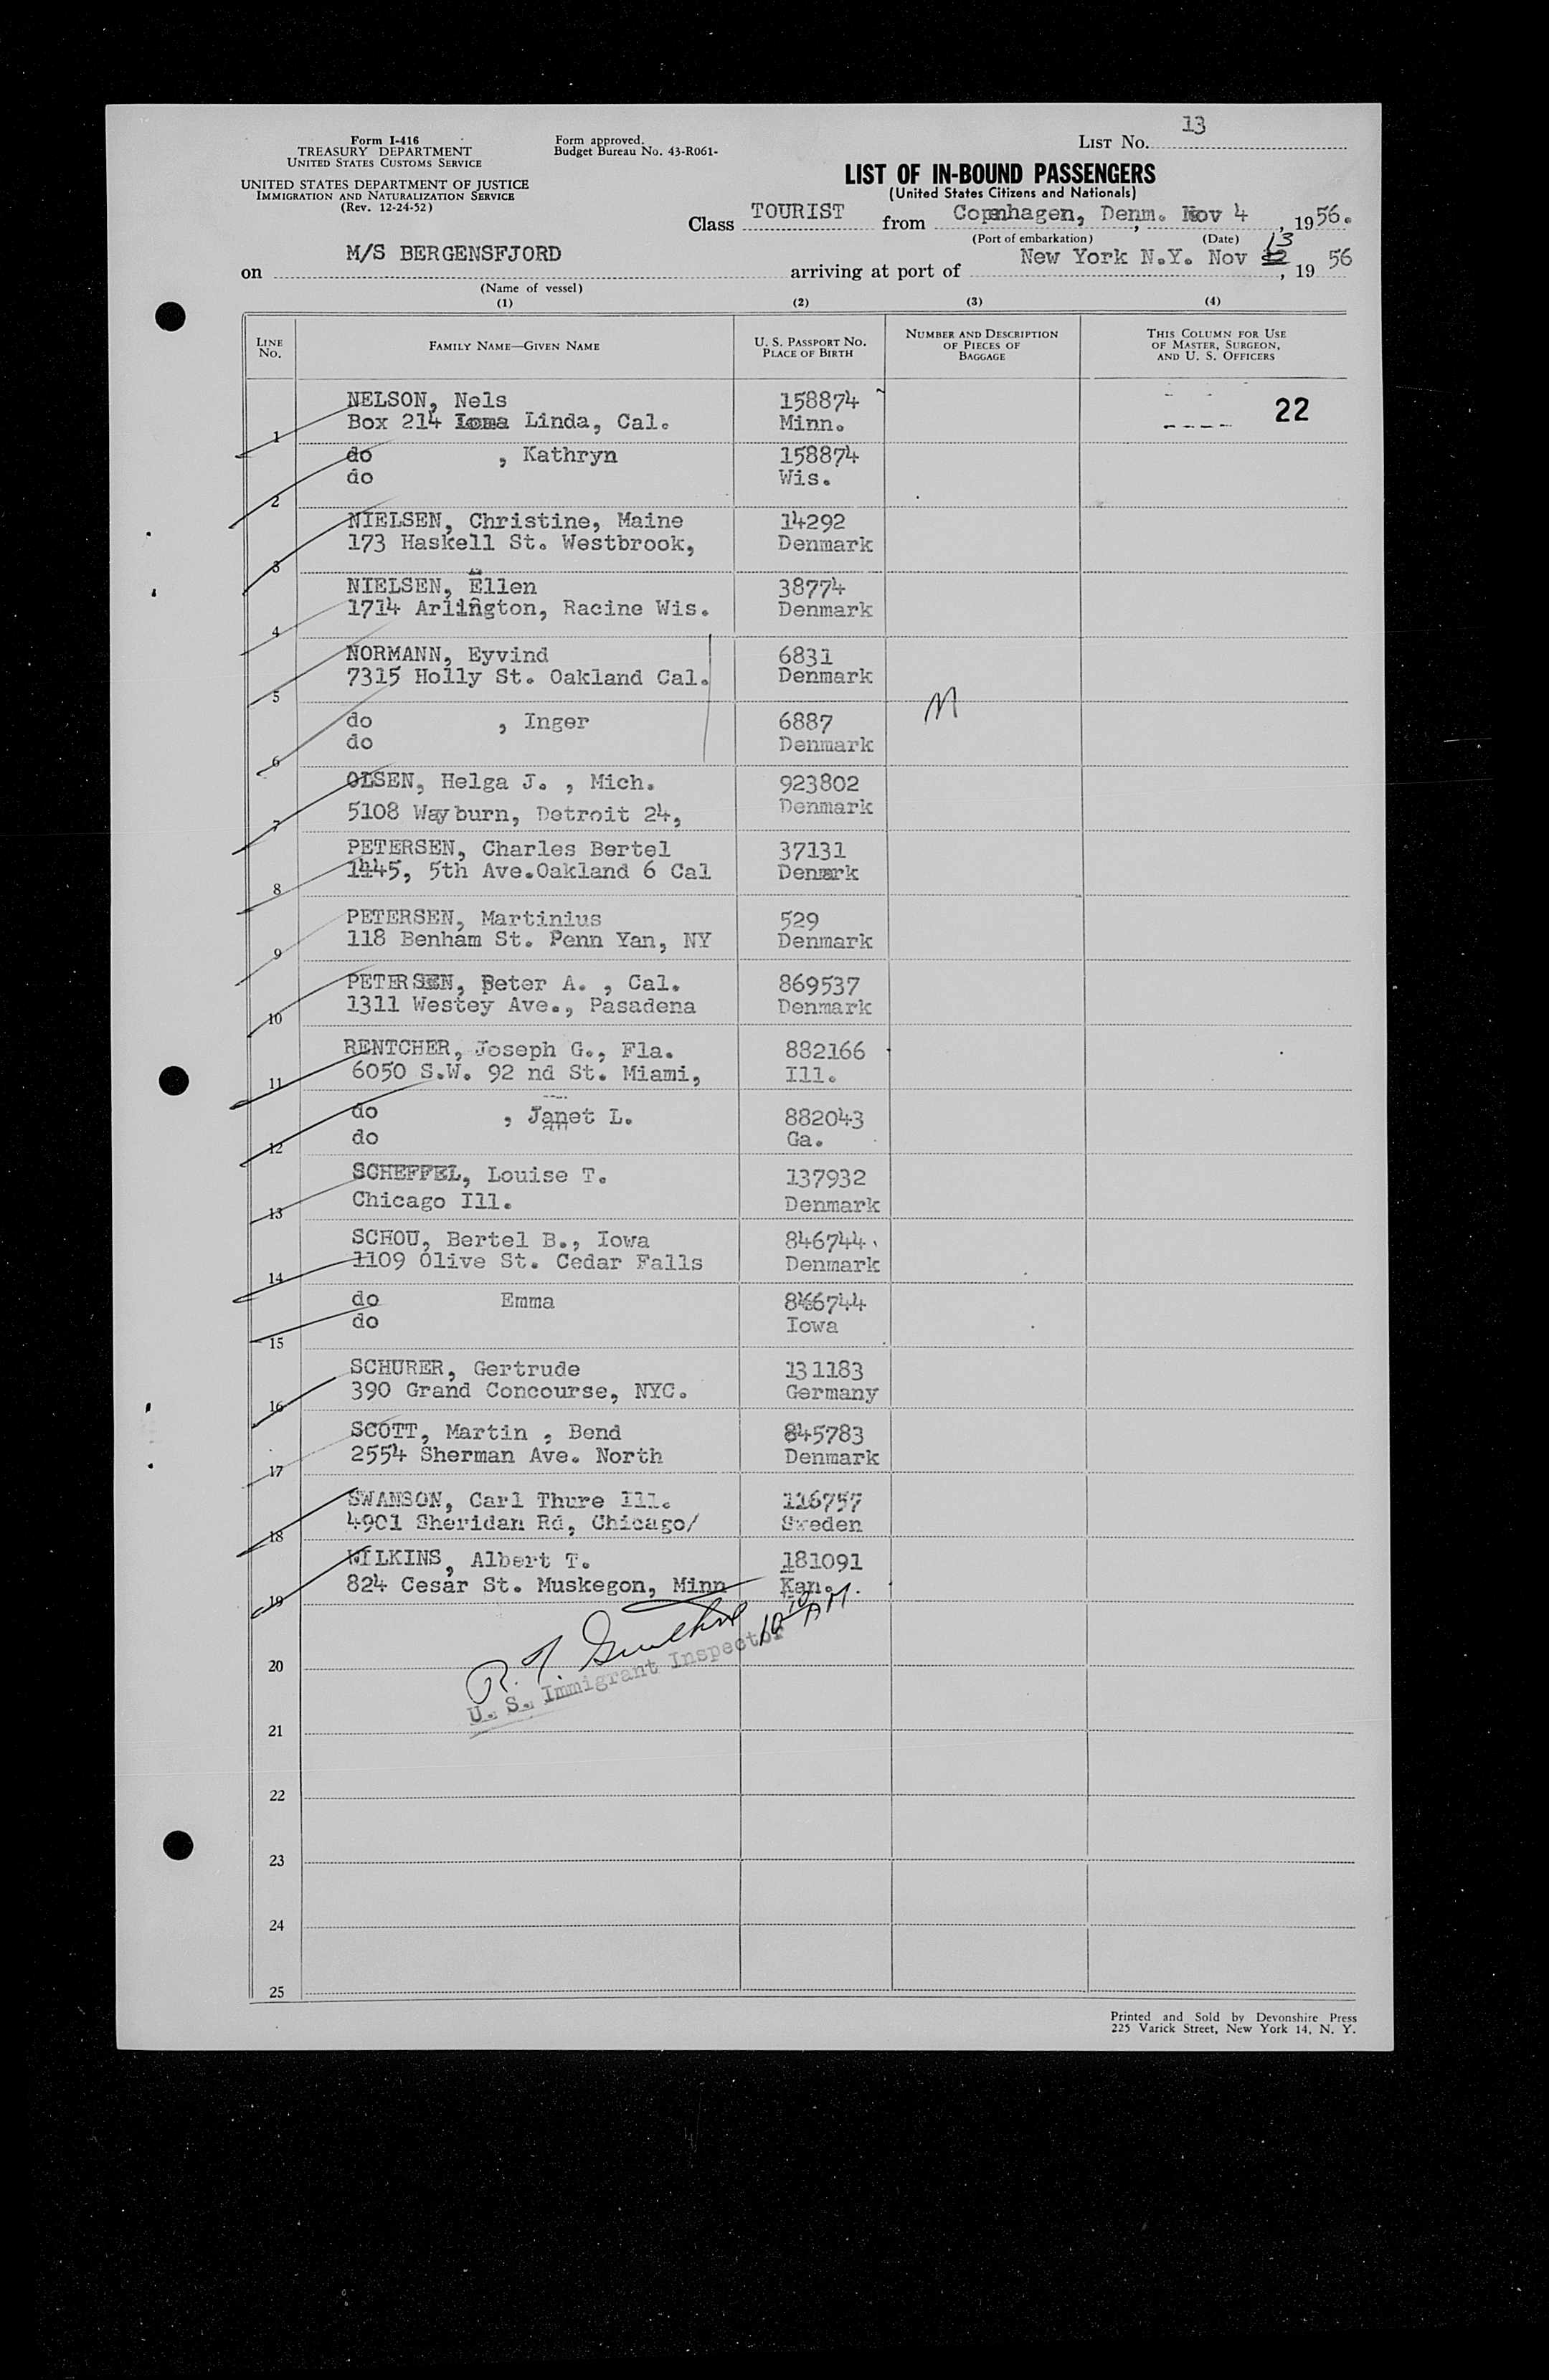 13
Form I-416
TREASURY DEPARTMENT
UNITED STATES CUSTOMS SERVICE
Form approved.
Budget Bureau No. 43-R061-
LIST No.
UNITED STATES DEPARTMENT OF JUSTICE
IMMIGRATION AND NATURALIZATION SERVICE
(Rev. 12-24-52)
LIST OF IN-BOUND PASSENGERS
(United States Citizens and Nationals)
Class TOURIST from Copenhagen, Denm. Nov 4, 1956.
(Port of embarkation) (Date)
on M/S BERGENSFJORD arriving at port of New York N.Y. Nov 13, 19 56
(Name of vessel)
(1) (2) (3) (4)
LINE No. FAMILY NAME—GIVEN NAME U. S. PASSPORT No. PLACE OF BIRTH NUMBER AND DESCRIPTION OF PIECES OF BAGGAGE THIS COLUMN FOR USE OF MASTER, SURGEON, AND U. S. OFFICERS
NELSON, Nels 158874 22
1 Box 214 Loma Linda, Cal. Minn.
do , Kathryn 158874
2 do Wis.
NIELSEN, Christine, Maine 14292
3 173 Haskell St. Westbrook, Denmark
NIELSEN, Ellen 38774
4 1714 Arlington, Racine Wis. Denmark
NORMANN, Eyvind 6831
5 7315 Holly St. Oakland Cal. Denmark
do , Inger 6887 M
6 do Denmark
OLSEN, Helga J. , Mich. 923802
7 5108 Wayburn, Detroit 24, Denmark
PETERSEN, Charles Bertel 37131
8 1445, 5th Ave.Oakland 6 Cal Denmark
PETERSEN, Martinius 529
9 118 Benham St. Penn Yan, NY Denmark
PETERSEN, Peter A. , Cal. 869537
10 1311 Westey Ave., Pasadena Denmark
RENTCHER, Joseph G., Fla. 882166
11 6050 S.W. 92 nd St. Miami, Ill.
do , Janet L. 882043
12 do Ga.
SCHEFFEL, Louise T. 137932
13 Chicago Ill. Denmark
SCHOU, Bertel B., Iowa 846744
14 1109 Olive St. Cedar Falls Denmark
do Emma 846744
15 do Iowa
SCHURER, Gertrude 131183
16 390 Grand Concourse, NYC. Germany
SCOTT, Martin , Bend 845783
17 2554 Sherman Ave. North Denmark
SWANSON, Carl Thure Ill. 116757
18 4901 Sheridan Rd, Chicago/ Sweden
WILKINS, Albert T. 181091
19 824 Cesar St. Muskegon, Minn Kan.
10 10 AM
20 U. S. Immigrant Inspector
21
22
23
24
25
Printed and Sold by Devonshire Press
225 Varick Street, New York 14, N. Y.